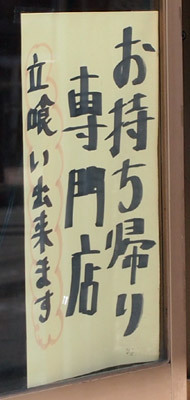 お持ち帰り
専門店
立喰い出来ます